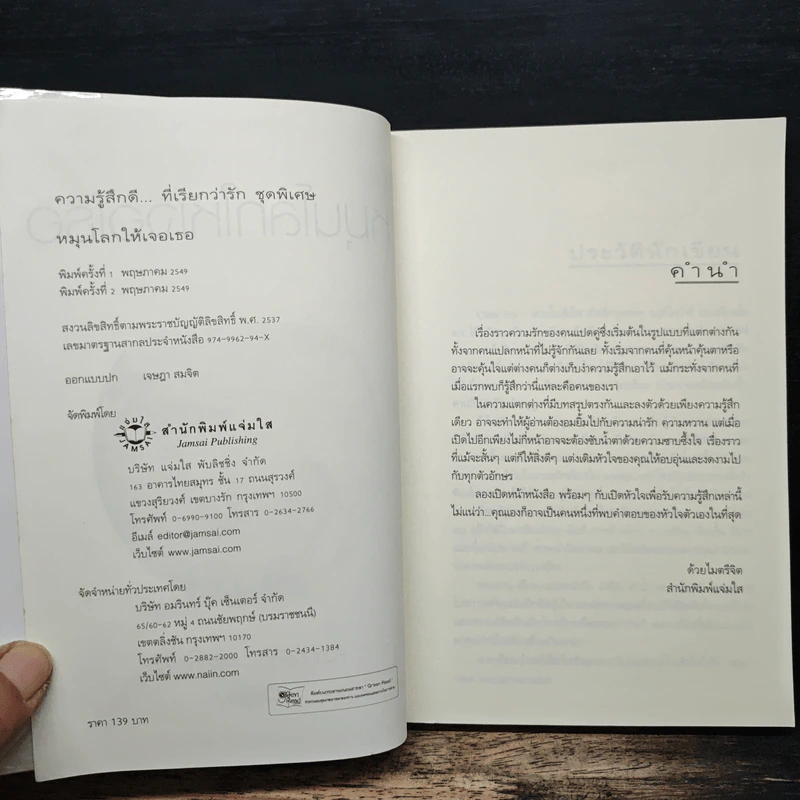 ความรู้สึกดี... ที่เรียกว่ารัก ชุดพิเศษ
หมุนโลกให้เจอเธอ
พิมพ์ครั้งที่ 1 พฤษภาคม 2549
พิมพ์ครั้งที่ 2 พฤษภาคม 2549
สงวนลิขสิทธิ์ตามพระราชบัญญัติลิขสิทธิ์ พ.ศ. 2537
เลขมาตรฐานสากลประจำหนังสือ 974-9962-94-X
ออกแบบปก เจษฎา สมจิต
จัดพิมพ์โดย
แจ่มใส
JAMSAI
สำนักพิมพ์แจ่มใส
Jamsai Publishing
บริษัท แจ่มใส พับลิชชิ่ง จำกัด
163 อาคารไทยสมุทร ชั้น 17 ถนนสุรวงศ์
แขวงสุริยวงศ์ เขตบางรัก กรุงเทพฯ 10500
โทรศัพท์ 0-6990-9100 โทรสาร 0-2634-2766
อีเมล์ editor@jamsai.com
เว็บไซต์ www.jamsai.com
จัดจำหน่ายทั่วประเทศโดย
บริษัท อมรินทร์ บุ๊ค เซ็นเตอร์ จำกัด
65/60-62 หมู่ 4 ถนนชัยพฤกษ์ (บรมราชชนนี)
เขตตลิ่งชัน กรุงเทพฯ 10170
โทรศัพท์ 0-2882-2000 โทรสาร 0-2434-1384
เว็บไซต์ www.naiin.com
ราคา 139 บาท
คำนำ
เรื่องราวความรักของคนแปดคู่ซึ่งเริ่มต้นในรูปแบบที่แตกต่างกัน
ทั้งจากคนแปลกหน้าที่ไม่รู้จักกันเลย ทั้งเริ่มจากคนที่คุ้นหน้าคุ้นตาหรือ
อาจจะคุ้นใจแต่ต่างคนก็ต่างเก็บงำความรู้สึกเอาไว้ แม้กระทั่งจากคนที่
เมื่อแรกพบก็รู้สึกว่านี่แหละคือคนของเรา
ในความแตกต่างที่มีบทสรุปตรงกันและลงตัวด้วยเพียงความรู้สึก
เดียว อาจจะทำให้ผู้อ่านต้องอมยิ้มไปกับความน่ารัก ความหวาน แต่เมื่อ
เปิดไปอีกเพียงไม่กี่หน้าอาจจะต้องซับน้ำตาด้วยความซาบซึ้งใจ เรื่องราว
ที่แม้จะสั้นๆ แต่ก็ให้สิ่งดีๆ แต่งเติมหัวใจของคุณให้อบอุ่นและงดงามไป
กับทุกตัวอักษร
ลองเปิดหน้าหนังสือ พร้อมๆ กับเปิดหัวใจเพื่อรับความรู้สึกเหล่านี้
ไม่แน่ว่า...คุณเองก็อาจเป็นคนหนึ่งที่พบคำตอบของหัวใจตัวเองในที่สุด
ด้วยไมตรีจิต
สำนักพิมพ์แจ่มใส